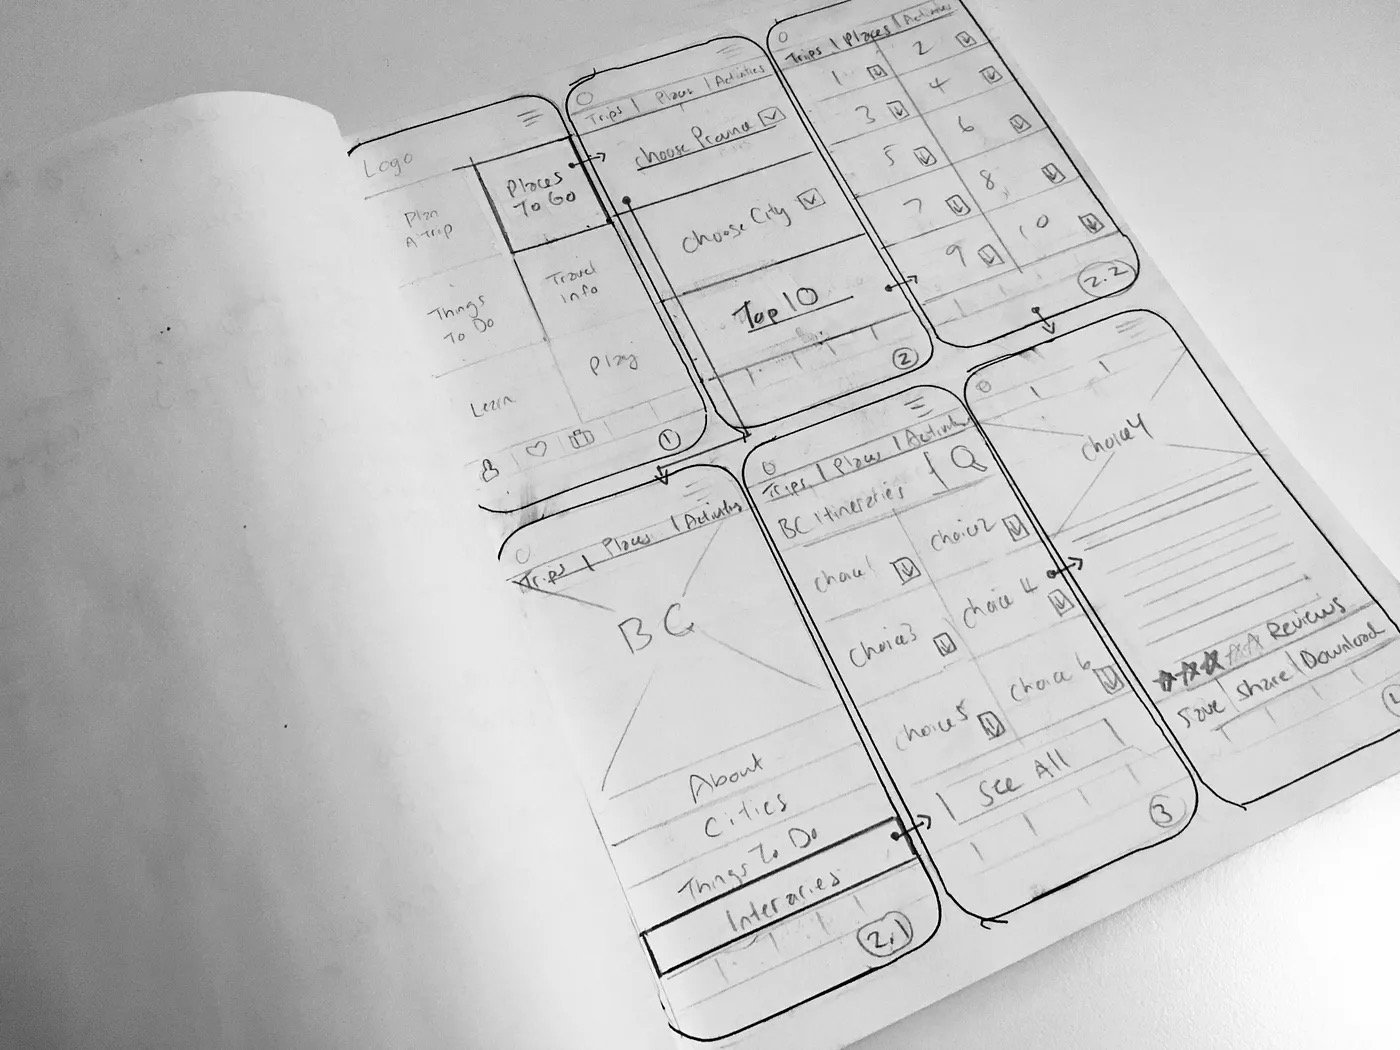 Logo
Plan
A Trip
Places
To Go
Things
To Do
Travel
Info
Learn
Play
1
Trips | Places | Activities
Choose Province
Choose City
Top 10
2
Trips | Places | Activities
1
2
3
4
5
6
7
8
9
10
2.2
Trips | Places | Activities
BC
About
Cities
Things To Do
Interaries
2.1
Trips | Places | Activities
BC Itineraries
choice 1
choice 2
choice 3
choice 4
choice 5
choice 6
See All
3
choice 4
Reviews
Save | Share | Download